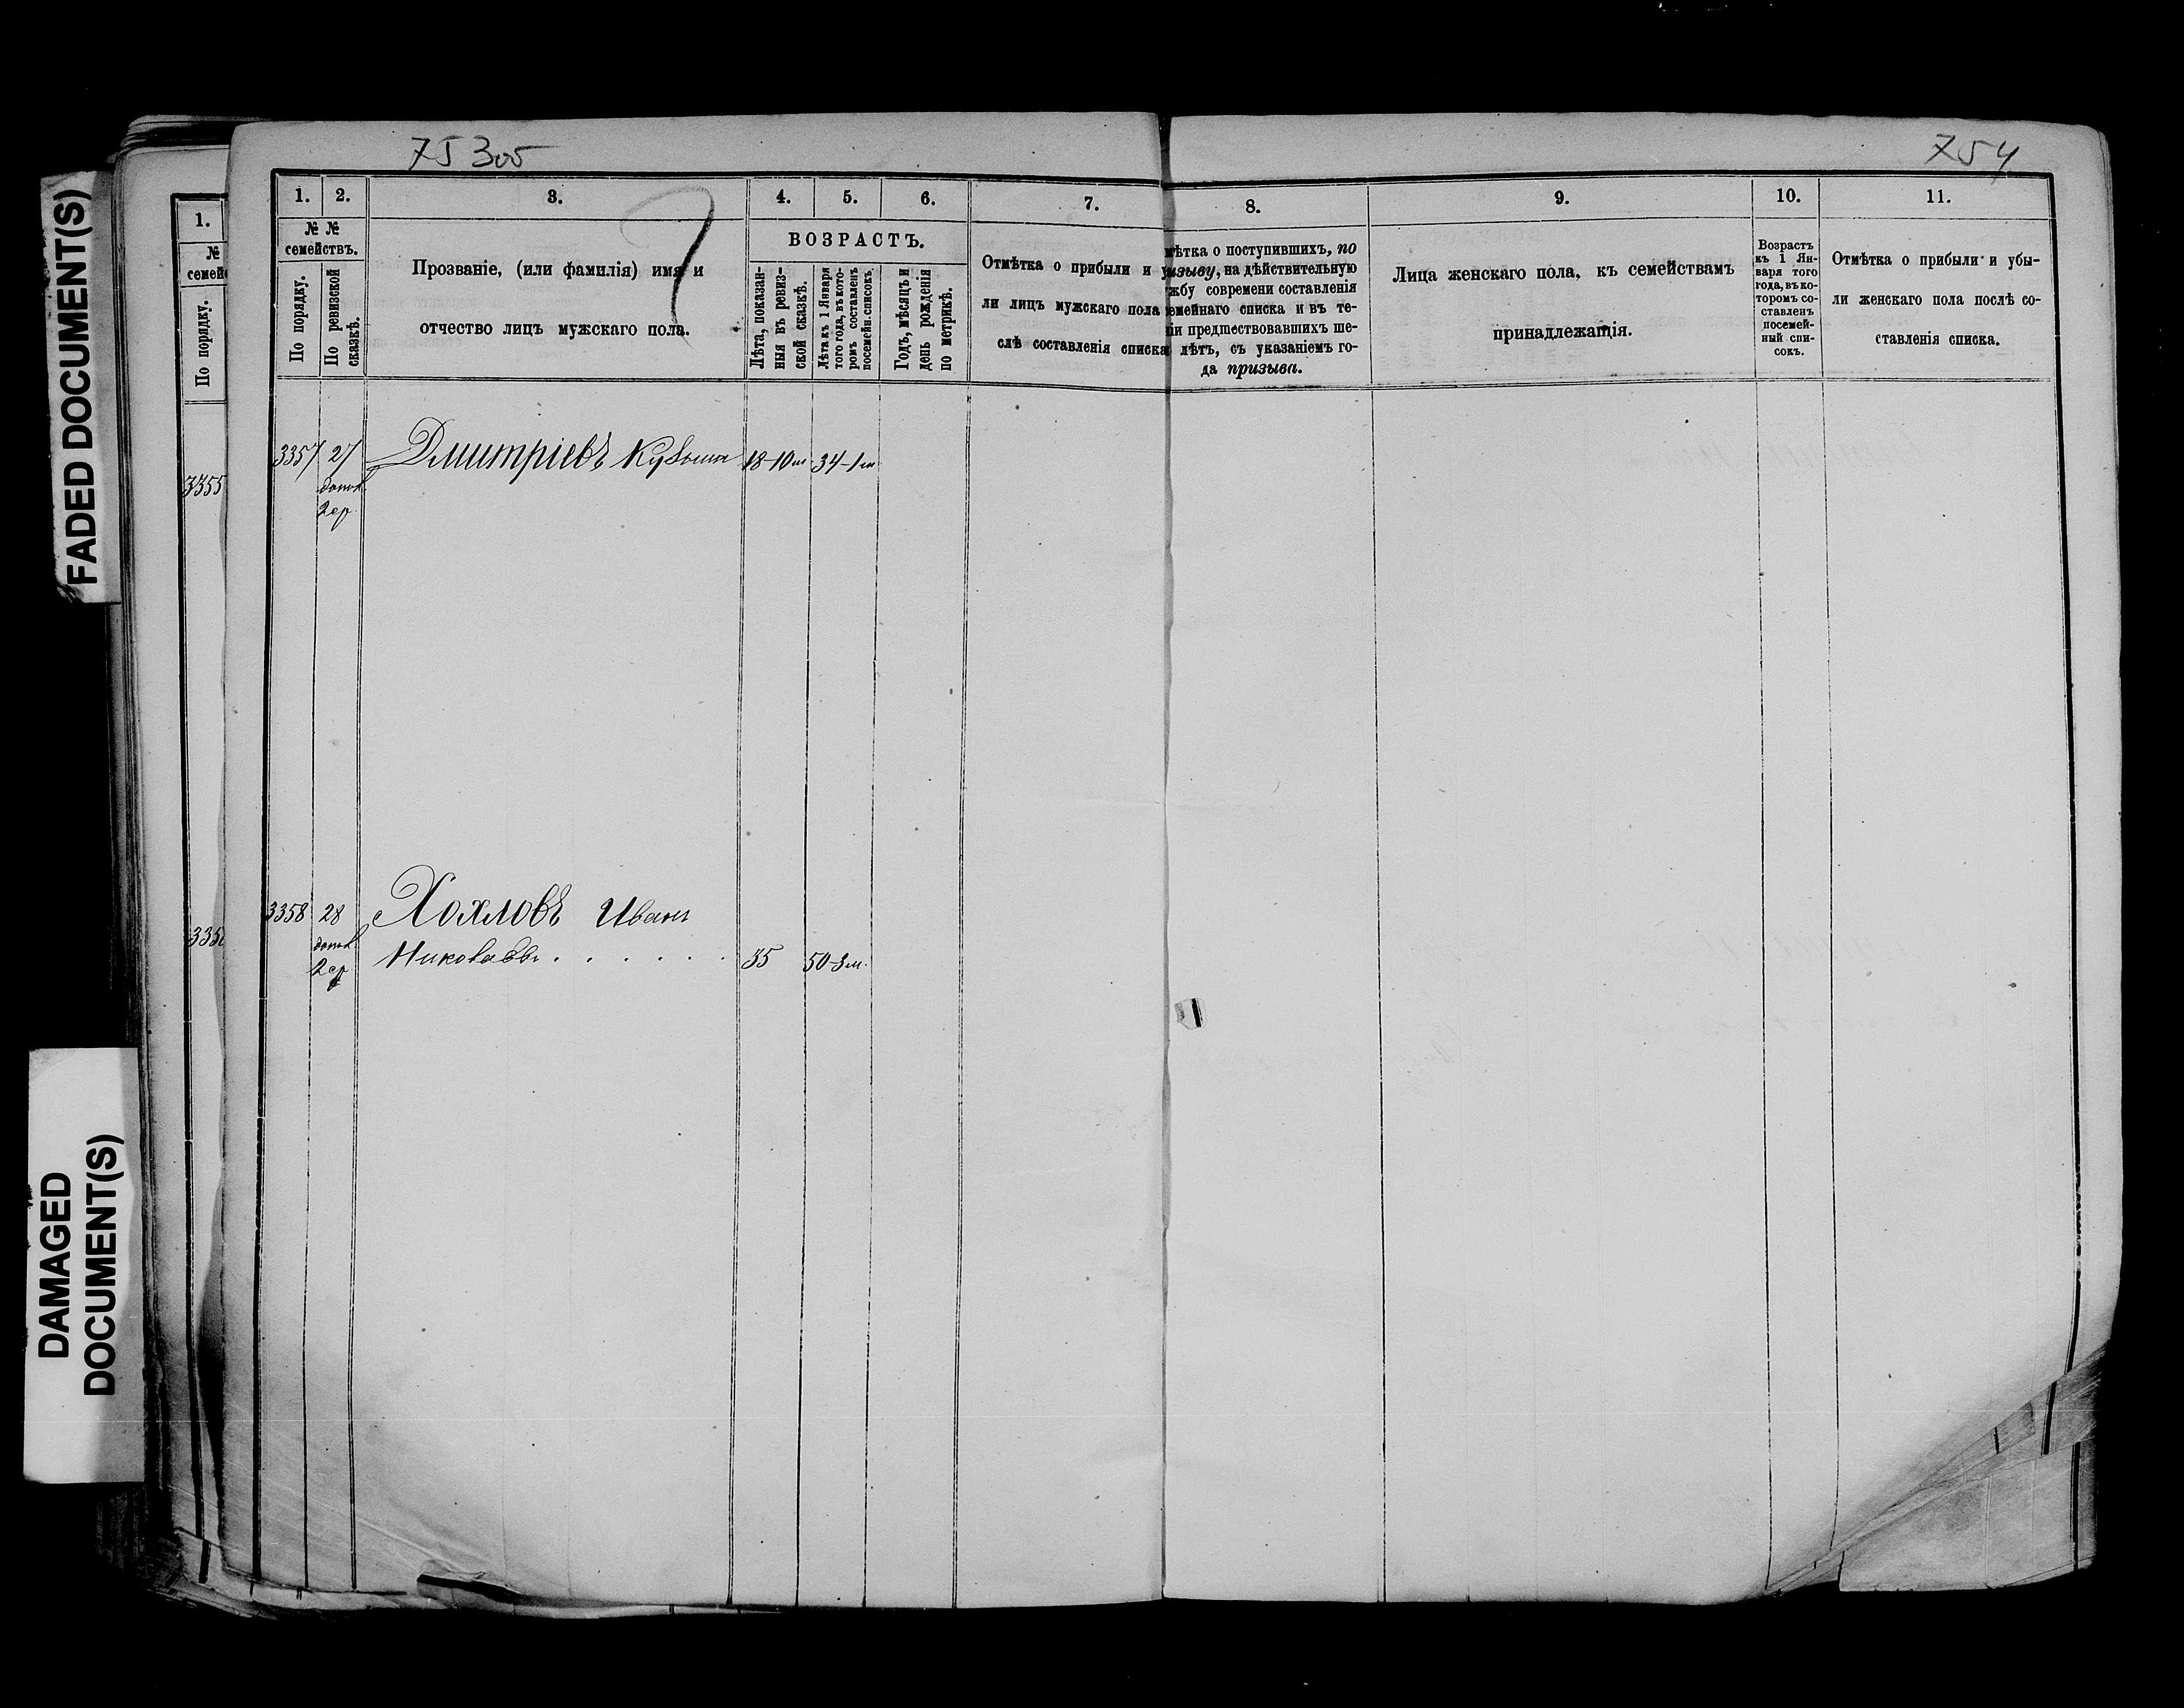 FADED DOCUMENT(S)
DAMAGED
DOCUMENT(S)
75 305
754
1.
№
По порядку.
3355
1. 2. 3. 4. 5. 6. 7. 8. 9. 10. 11.
№ №
семействъ.
По порядку.
По ревизской
сказкѣ.
Прозваніе, (или фамилія) имя и
отчество лицъ мужскаго пола.
ВОЗРАСТЪ.
Лѣта, показан-
ныя въ ревиз-
ской сказкѣ.
Лѣта къ 1 Января
того года, въ кото-
ромъ составленъ
посемейн. списокъ.
Годъ, мѣсяцъ и
день рожденія
по метрикѣ.
Отмѣтка о прибыли и
ли лицъ мужскаго пола
слѣ составленія списка
мѣтка о поступившихъ, по
изыву, на дѣйствительную
жбу современи составленія
емейнаго списка и въ те-
іи предшествовавшихъ ше-
лѣтъ, съ указаніемъ го-
да призыва.
Лица женскаго пола, къ семействамъ
принадлежащія.
Возрастъ
къ 1 Ян-
варя того
года, въ ко-
торомъ со-
ставленъ
посемей-
ный спи-
сокъ.
Отмѣтка о прибыли и убы-
ли женскаго пола послѣ со-
ставленія списка.
3357 27 Дмитріевъ Кузьма 18-10м 34-1м
2 ср.
3358 28 Хохловъ Иванъ
2 ср Николаевъ . . . . . . 35 50-3м.